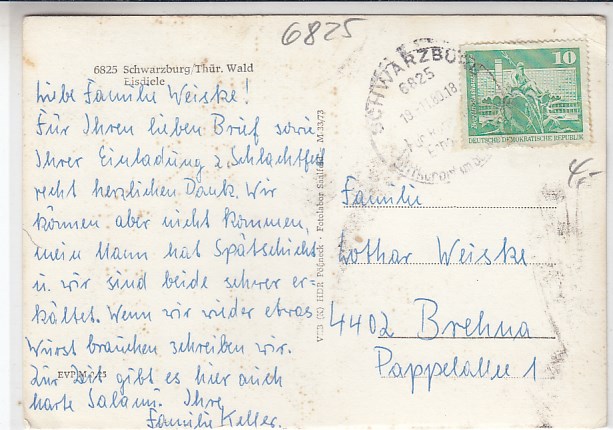 6825
6825 Schwarzburg/Thür. Wald
Eisdiele
Liebe Familie Weiske!
Für Ihren lieben Brief sowie
Ihrer Einladung z. Schlachtfest
recht herzlichen Dank. Wir
können aber nicht kommen,
mein Mann hat Spätschicht
u. wir sind beide schwer er-
kältet. Wenn wir wieder etwas
Wurst brauchen schreiben wir.
Zur Zeit gibt es hier auch
harte Salami. Ihre
Familie Keller.
EVP M
VEB (K) HDR Pößneck · Fotolabor Saalfeld M-33/73
SCHWARZBURG
6825
10
DEUTSCHE DEMOKRATISCHE REPUBLIK
4,-
Familie
Lothar Weiske
4402 Brehna
Pappelallee 1